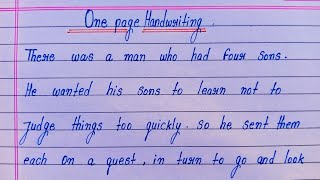 One page Handwriting.
There was a man who had four sons.
He wanted his sons to learn not to
judge things too quickly. So he sent them
each on a quest, in turn to go and look